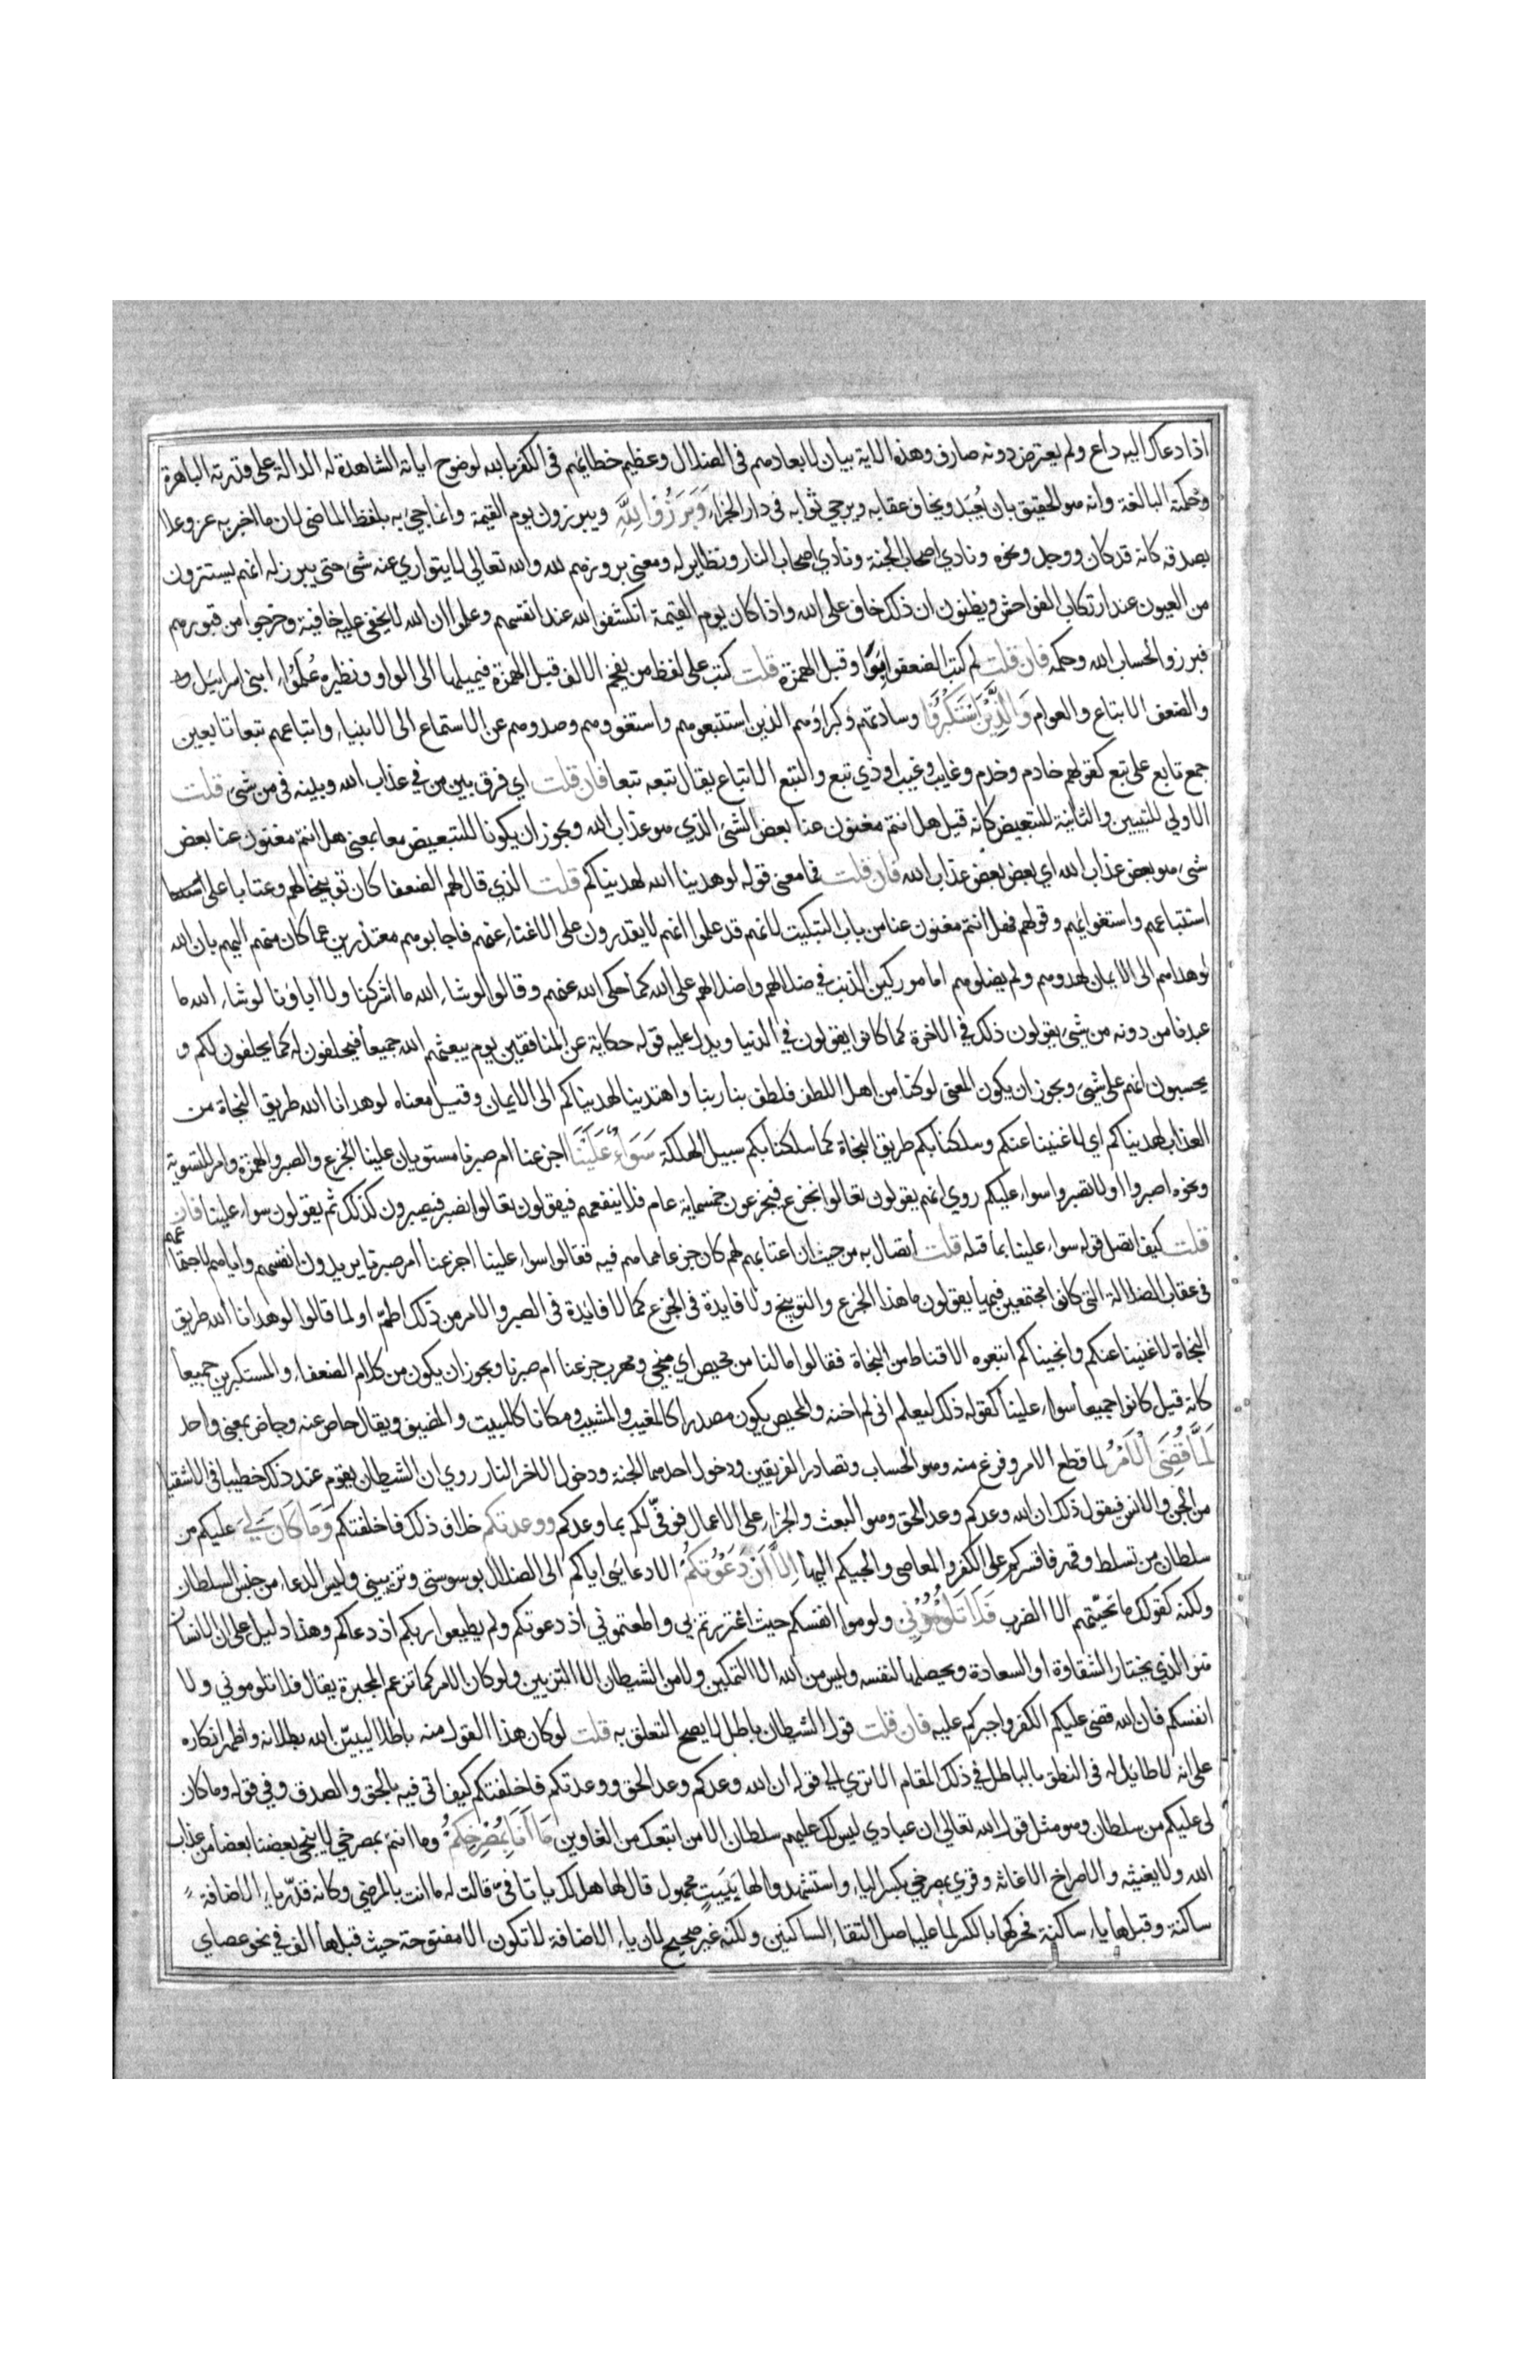 اذا دعاك اليه داع ولم يعترض دونه صارف وهذه الاية بيان لابعادهم فى الضلال وعظيم خطائهم فى الكفر بالله لوضوح اياته الشاهدة له الدالة على قدرته الباهرة
وحكمته البالغة وانه هو الحقيق بان يُعبَد ويخاف عقابه ويرجى ثوابه فى دار الجزاء وَبَرَزُوا لِلَّهِ ويبرزون يوم القيمة وانما جئ به بلفظ الماضى لان ما اخبر به عز وعلا
بصدقه كانه قد كان ووجد ونحوه ونادي اصحاب الجنة ونادي اصحاب النار ونظاير له ومعنى بروزهم لله والله تعالى لا يتواري عنه شئ حتى يبرز له انهم يستترون
من العيون عند ارتكاب الفواحش ويظنون ان ذلك خاف على الله واذا كان يوم القيمة انكشفوا لله عند انفسهم وعلموا ان الله لا يخفى عليه خافية وخرجوا من قبورهم
فبرزوا لحساب الله وحكمه فان قلت لم كتب الضعفوا بواو قبل الهمزة قلت كتب على لفظ من يفخم الالف قبل الهمزة فيميلها الى الواو ونظيره عُلَمٰوُا بنى اسراييل
والضعفا الاتباع والعوام وَالَّذِينَ اسْتَكْبَرُوا وسادتهم وكبراوهم الذين استتبعوهم واستغووهم وصدوهم عن الاستماع الى الانبياء واتباعهم تبعا تابعين
جمع تابع على تبع كقولهم خادم وخدم وغايب وغيب او ذي تبع والتبع الاتباع يقال تبعه تبعا فان قلت اي فرق بين من في عذاب الله وبينه فى من شئ قلت
الاولى للتبيين والثانية للتبعيض كانه قيل هل انتم مغنون عنا بعض الشئ الذي هو عذاب الله ويجوز ان يكونا للتبعيض معا بمعنى هل انتم مغنون عنا بعض
شئ هو بعض عذاب الله اي بعض بعض عذاب الله فان قلت فما معنى قوله لو هدينا الله لهديناكم قلت الذي قال لهم الضعفا كان توبيخا لهم وعتابا على
استتباعهم واستغوائهم وقولهم فهل انتم مغنون عنا من باب التبكيت لانهم قد علموا انهم لا يقدرون على الاغناء عنهم فاجابوهم معتذرين عما كان منهم اليهم بان الله
لو هداهم الى الايمان لهدوهم ولم يضلوهم اما موركين الذنب في ضلالهم واضلالهم على الله كما حكى الله عنهم وقالوا لو شاء الله ما اشركنا ولا اباونا لو شاء الله ما
عبدنا من دونه من شئ يقولون ذلك في الاخرة كما كانوا يقولون في الدنيا ويدل عليه قوله حكاية عن المنافقين يوم يبعثهم الله جميعا فيحلفون له كما يحلفون لكم و
يحسبون انهم على شئ ويجوز ان يكون المعنى لو كنا من اهل اللطف فلطف بنا ربنا واهتدينا لهديناكم الى الايمان وقيل معناه لو هدانا الله طريق النجاة من
العذاب لهديناكم اي لاغنينا عنكم وسلكنا بكم طريق النجاة كما سلكنا بكم سبيل الهلكة سَوَاءٌ عَلَيْنَا اجزعنا ام صبرنا مستويان علينا الجزع والصبر والهمزة وام للتسوية
ونحوه اصبروا او لا تصبروا سواء عليكم روي انهم يقولون تعالوا نجزع فيجزعون خمسماية عام فلا ينفعهم فيقولون تعالوا نصبر فيصبرون كذلك ثم يقولون سواء علينا فان
قلت كيف اتصل قوله سواء علينا بما قبله قلت اتصاله به من حيث ان عتابهم لهم كان جزعا مما هم فيه فقالوا سواء علينا اجزعنا ام صبرنا يريدون انفسهم واياهم لاجتماعهم
فى عقاب الضلالة التى كانوا مجتمعين فيها يقولون ما هذا الجزع والتوبيخ ولا فايدة فى الجزع كما لا فايدة فى الصبر والامر من ذلك اطمّ او لما قالوا لو هدانا الله طريق
النجاة لاغنينا عنكم وانجيناكم اتبعوه الاقناط من النجاة فقالوا ما لنا من محيص اي منجى ومهرب جزعنا ام صبرنا ويجوز ان يكون من كلام الضعفاء والمستكبرين جميعا
كانه قيل كانوا جميعا سواء علينا كقوله ذلك ليعلم انى لم اخنه والمحيص يكون مصدرا كالمغيب والمشيب ومكانا كالمبيت والمضيق ويقال حاص عنه وجاض بمعنى واحد
لَمَّا قُضِىَ الْاَمْرُ لما قطع الامر وفرغ منه وهو الحساب وتصادر الفريقين ودخول احدهما الجنة ودخول الاخر النار روي ان الشيطان يقوم عند ذلك خطيبا فى الاشقيا
من الجن والانس فيقول ذلك ان الله وعدكم وعد الحق وهو البعث والجزاء على الاعمال فوفّى لكم بما وعدكم ووعدتكم خلاف ذلك فاخلفتكم وَمَا كَانَ لِىَ عليكم من
سلطان من تسلط وقهر فاقسركم على الكفر والمعاصى والجيكم اليها اِلَّا اَنْ دَعَوْتكُمْ الا دعايى اياكم الى الضلال بوسوستى وتزيينى وليس الدعاء من جنس السلطان
ولكنه كقولك ما تحيّتهم الا الضرب فَلَا تَلُومُونِي ولوموا انفسكم حيث اغتررتم بي واطعتموني اذ دعوتكم ولم يطيعوا ربكم اذ دعاكم وهذا دليل على ان الانسان
هو الذي يختار الشقاوة او السعادة ويحصلها لنفسه وليس من الله الا التمكين ولا من الشيطان الا التزيين ولو كان الامر كما تزعم المجبرة يقال فلا تلوموني ولا
انفسكم فان الله قضى عليكم الكفر واجبركم عليه فان قلت قول الشيطان باطل لا يصح التعلق به قلت لو كان هذا القول منه باطلا لبيّن الله بطلانه واظهر انكاره
على انه لا طائل له فى النطق بالباطل في ذلك المقام الا تري الى قوله ان الله وعدكم وعد الحق ووعدتكم فاخلفتكم كيف اتى فيه بالحق والصدق وفي قوله وما كان
لى عليكم من سلطان وهو مثل قول الله تعالى ان عبادي ليس لك عليهم سلطان الا من اتبعك من الغاوين مَا اَنَا بِمُصْرِخِكمْ وما انتم بمصرخي لا ينجي بعضنا بعضا من عذاب
الله ولا يغيثه والاصراخ الاغاثة وقري بمصرخي بكسر الياء واستشهدوا لها بِبَيتٍ مجهول قال لها هل لك يا تا فيّ قالت له ما انت بالمرضي وكانه قدّر ياء الاضافة
ساكنة وقبلها ياء ساكنة فحركها بالكسر لما عليه اصل التقاء الساكنين ولكنه غير صحيح لان ياء الاضافة لا تكون الا مفتوحة حيث قبلها الف في نحو عصاي